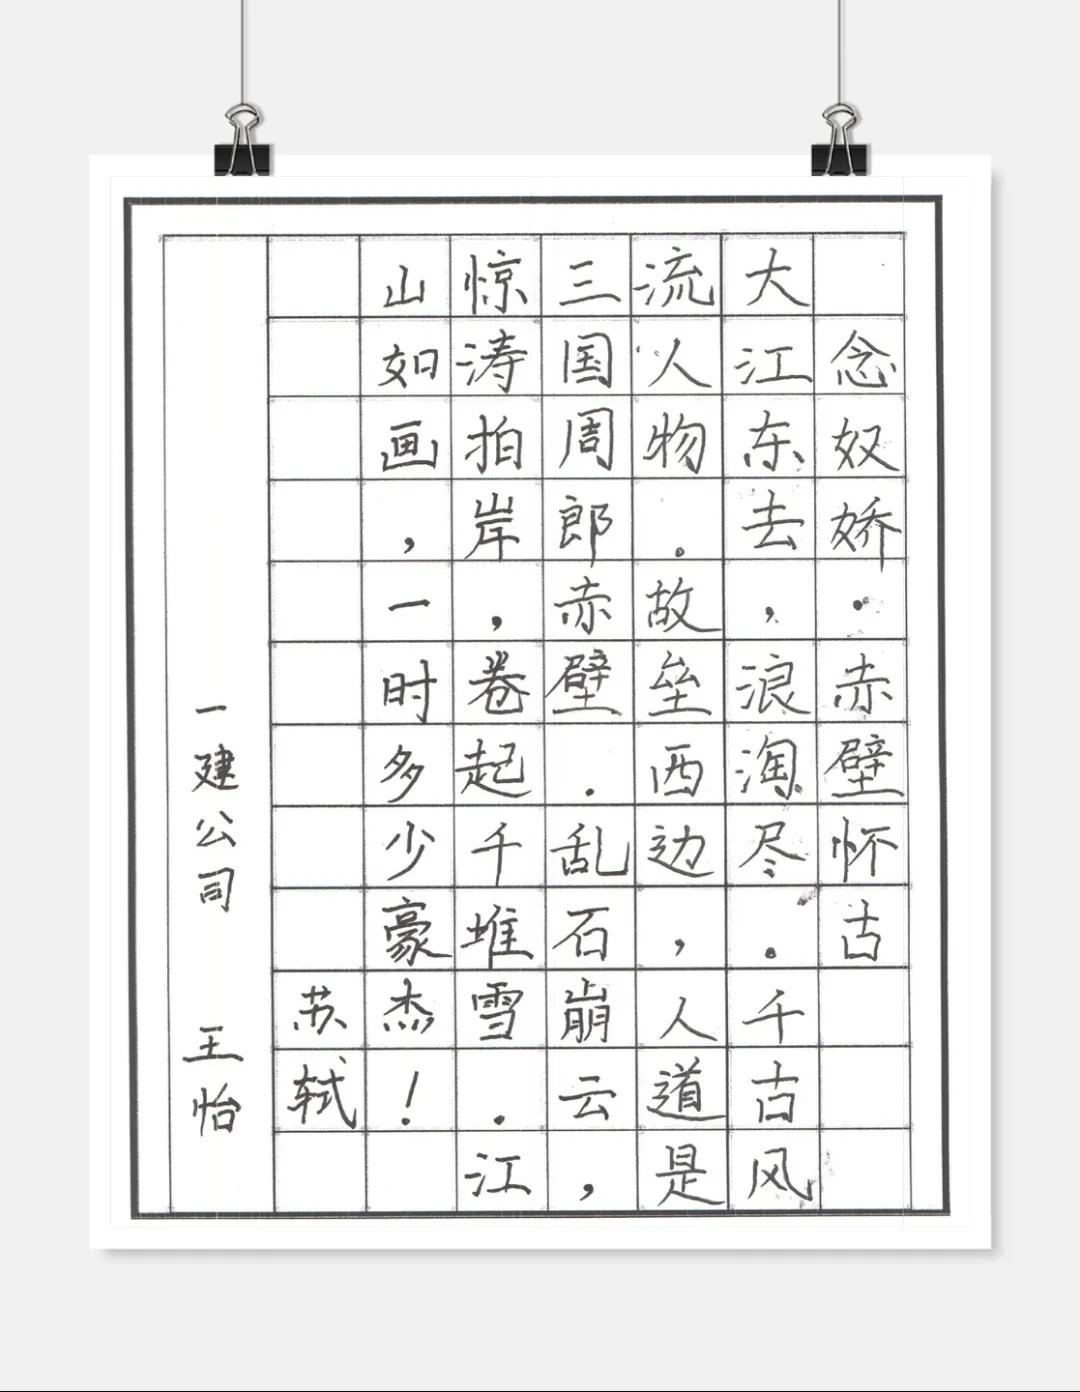 念奴娇·赤壁怀古
大江东去，浪淘尽。千古风
流人物。故垒西边，人道是
三国周郎赤壁.乱石崩云，
惊涛拍岸，卷起千堆雪.江
山如画，一时多少豪杰！
苏轼
一建公司 王怡